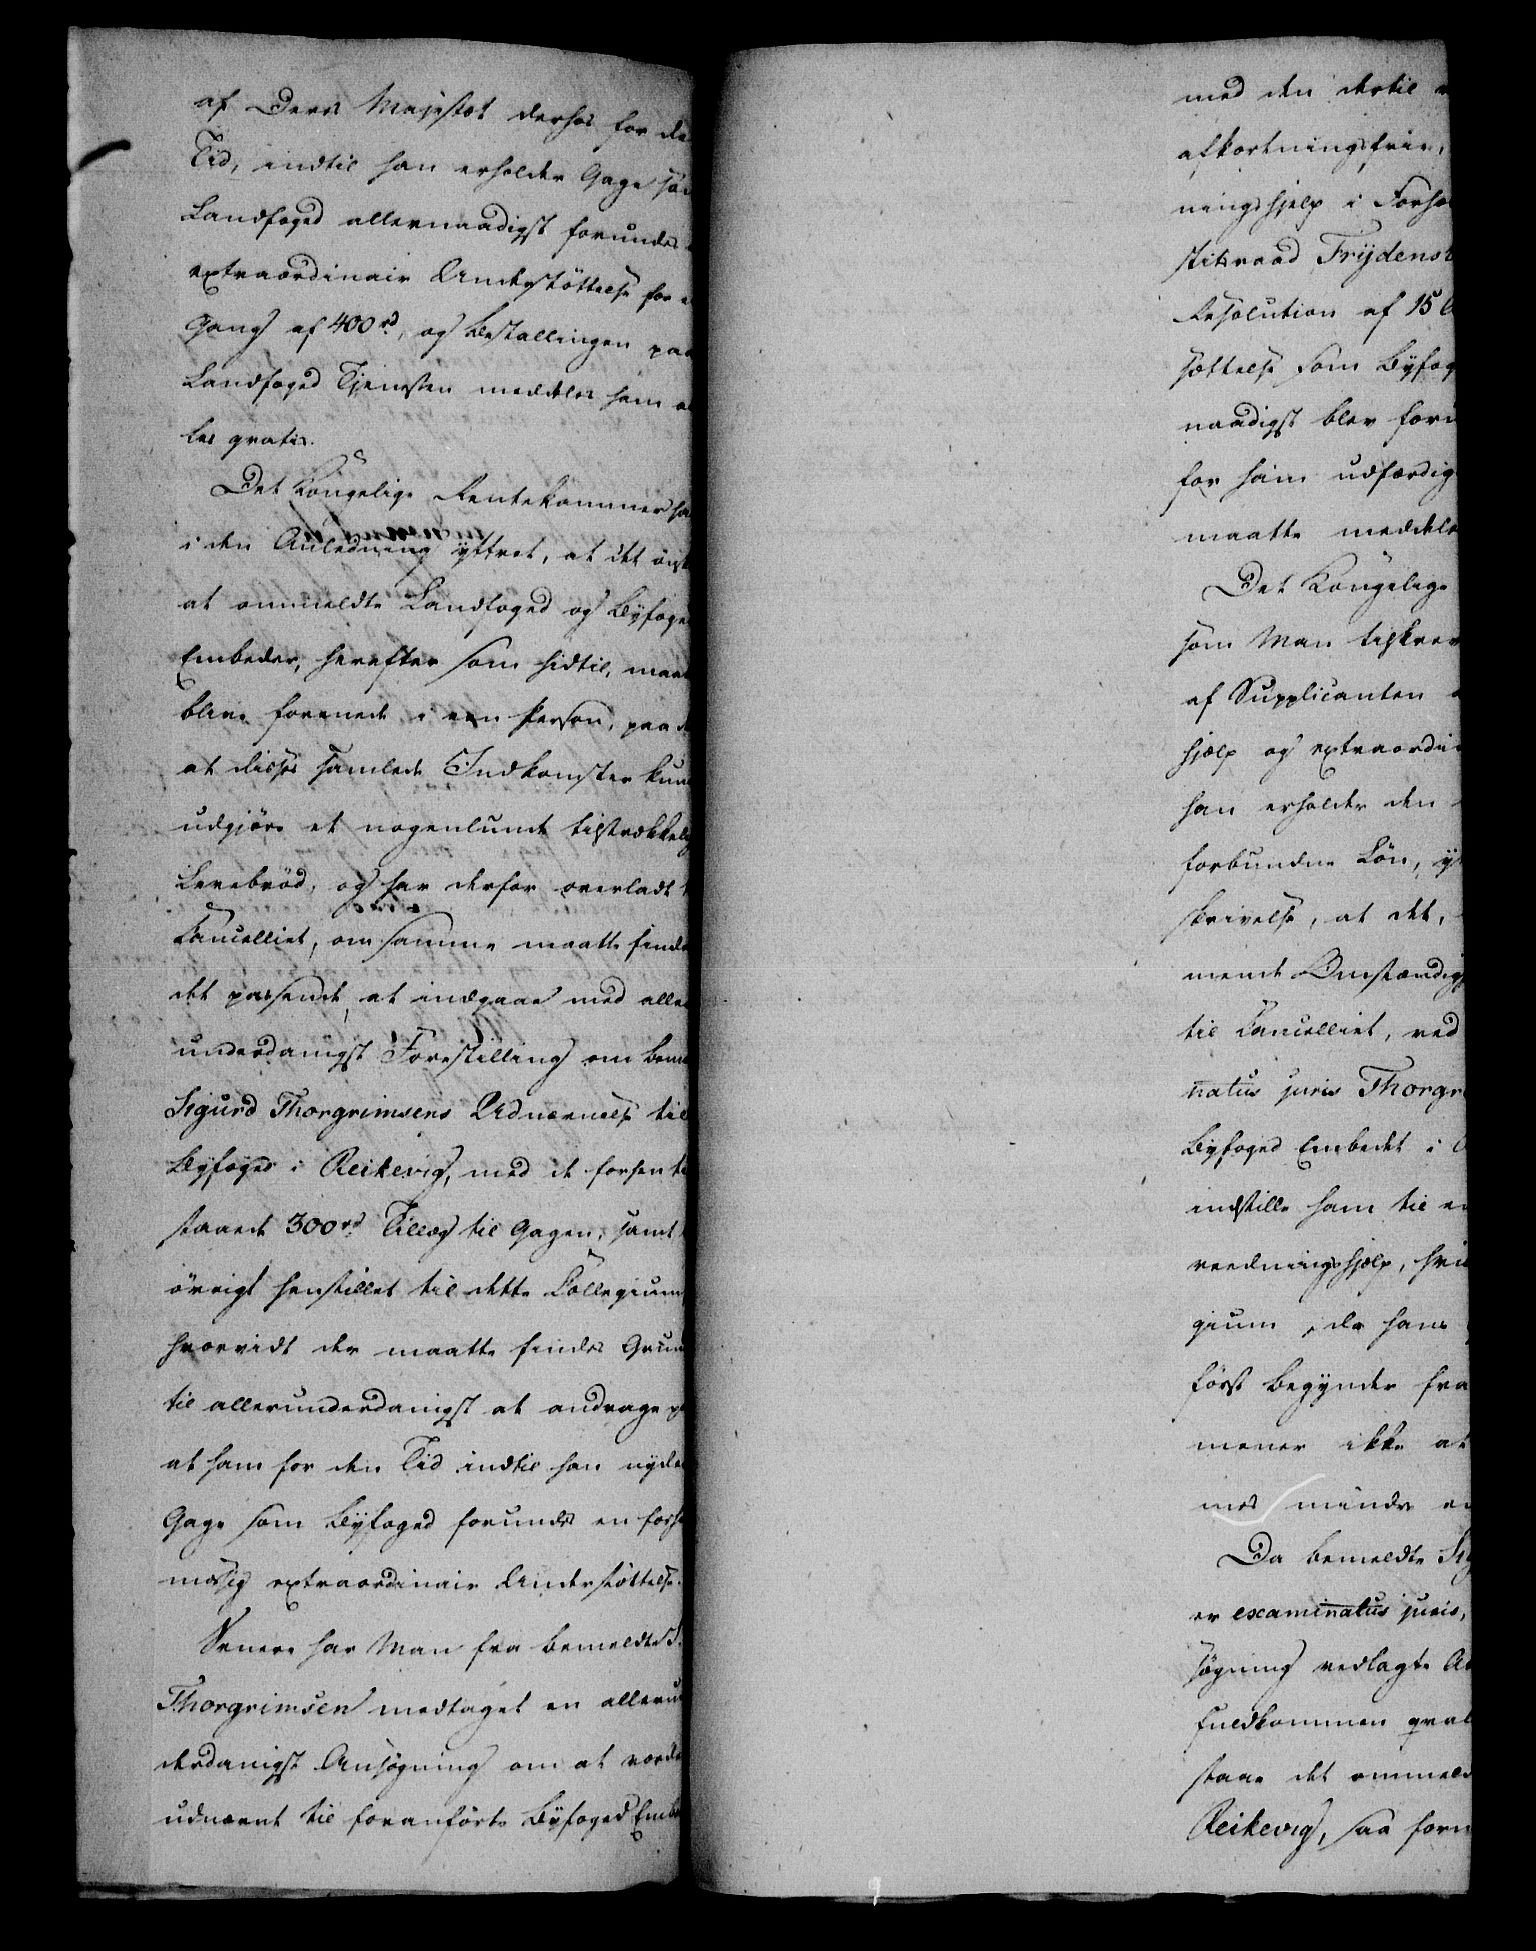 af Deres Majestæt derhos for de
Tid, indtil han erholder Gage som
Landfoged allernaadigst forundes
extraordinair Understöttelse for e
Gang af 400 rd, og Bestallingen paa
Landfoged Tjenesten meddeles ham a
les gratis.
Det Kongelige Rentekammer ha
i den Anledning yttret, at det önsk
at ommeldte Landfoged og Byfoge
Embeder, herefter som hidtil, maa
blive forenede i een Person, paa d
at disses samlede Indkomster kun
udgjöre et nogenlunde tilstrækkeli
Levebröd, og har derfor overladt t
Cancelliet, om samme maatte finde
det passende, at indgaae med alle
underdanigst Forestilling om bem
Sigurd Thorgrimsens Udnævnelse til
Byfoged i Reikevig, med de forhen t
staaede 300 rd Tillæg til Gagen, samt
övrigt henstillet til dette Collegium
hvorvidt der maatte findes Grun
til allerunderdanigst at andrage p
at ham for den Tid indtil han nyde
Gage som Byfoged forundes en forho
mæssig extraordinair Understöttelse.
Senere har Man fra bemeldte S.
Thorgrimsen modtaget en alleru
derdanigst Ansögning om at vorde
udnævnt til foranförte Byfoged Emb
med den dertil
afkortningsfrie,
ningshjelp i Forho
stitsraad Frydens
Resolution af 15
sættelse som Byfog
naadigst blev foru
for ham udfærdig
maatte meddele
Det Kongelige
som Man tilskrev
af Supplicanten
hjelp og extraordin
han erholder den
forbundne Lön, yt
skrivelse, at det,
mende Omstændig
til Cancelliet, ved
natus juris Thorgr
Byfoged Embedet i
indstille ham til en
reedningshjelp, hvi
gium, da hans
först begynder fra
mener ikke at
mes mindre en
Da bemeldte Sig
er examinatus juris,
sögning vedlagte At
fuldkommen qval
staae det ommeld
Reikevig, saa form